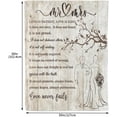 mr mrs
Love is patient, love is kind.
It does not envy, it does not boast,
it is not proud.
It does not dishonor others, it
is not self-seeking,
it is not easily angered,
it keeps no record of wrongs.
Love does not delight in evil but
rejoices with the truth.
It always protects, always trusts,
always hopes, always perseveres.
Love never fails